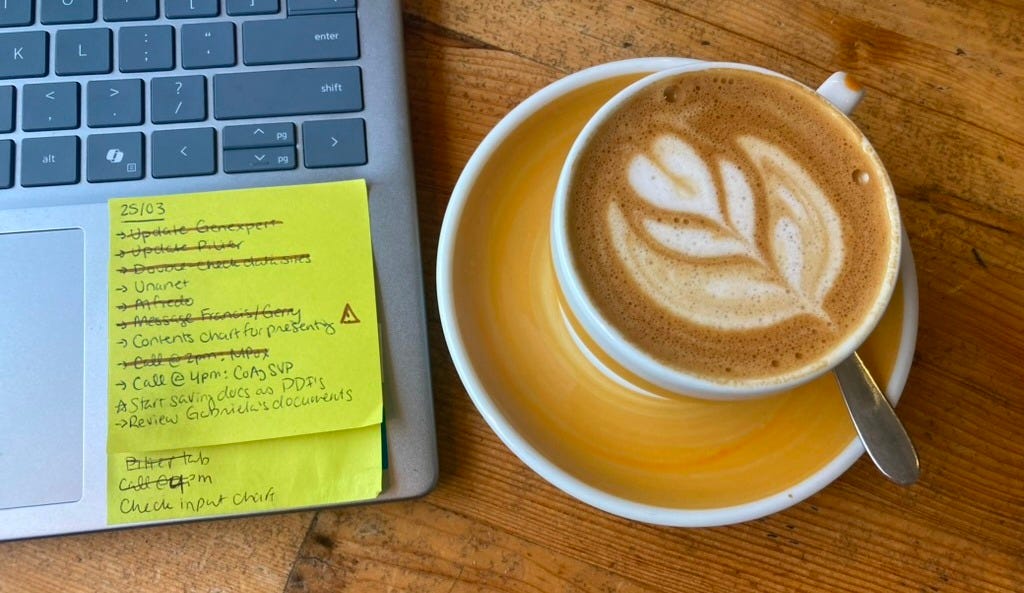 K L : ; " ' enter
< , > . ? / shift
alt < ^ pg v pg >
25/03
→ Update Genexpert
→ Update
→ Double check data sites
→ Unanet
→ Alfredo
→ Message Francis/Gerry
→ Contents chart for presenting
→ Call @ 2pm: MPox
→ Call @ 4pm: CoAg SVP
☆ Start saving docs as PDFs
→ Review Gabriela's documents
tab
Call @ 4pm
Check input chart